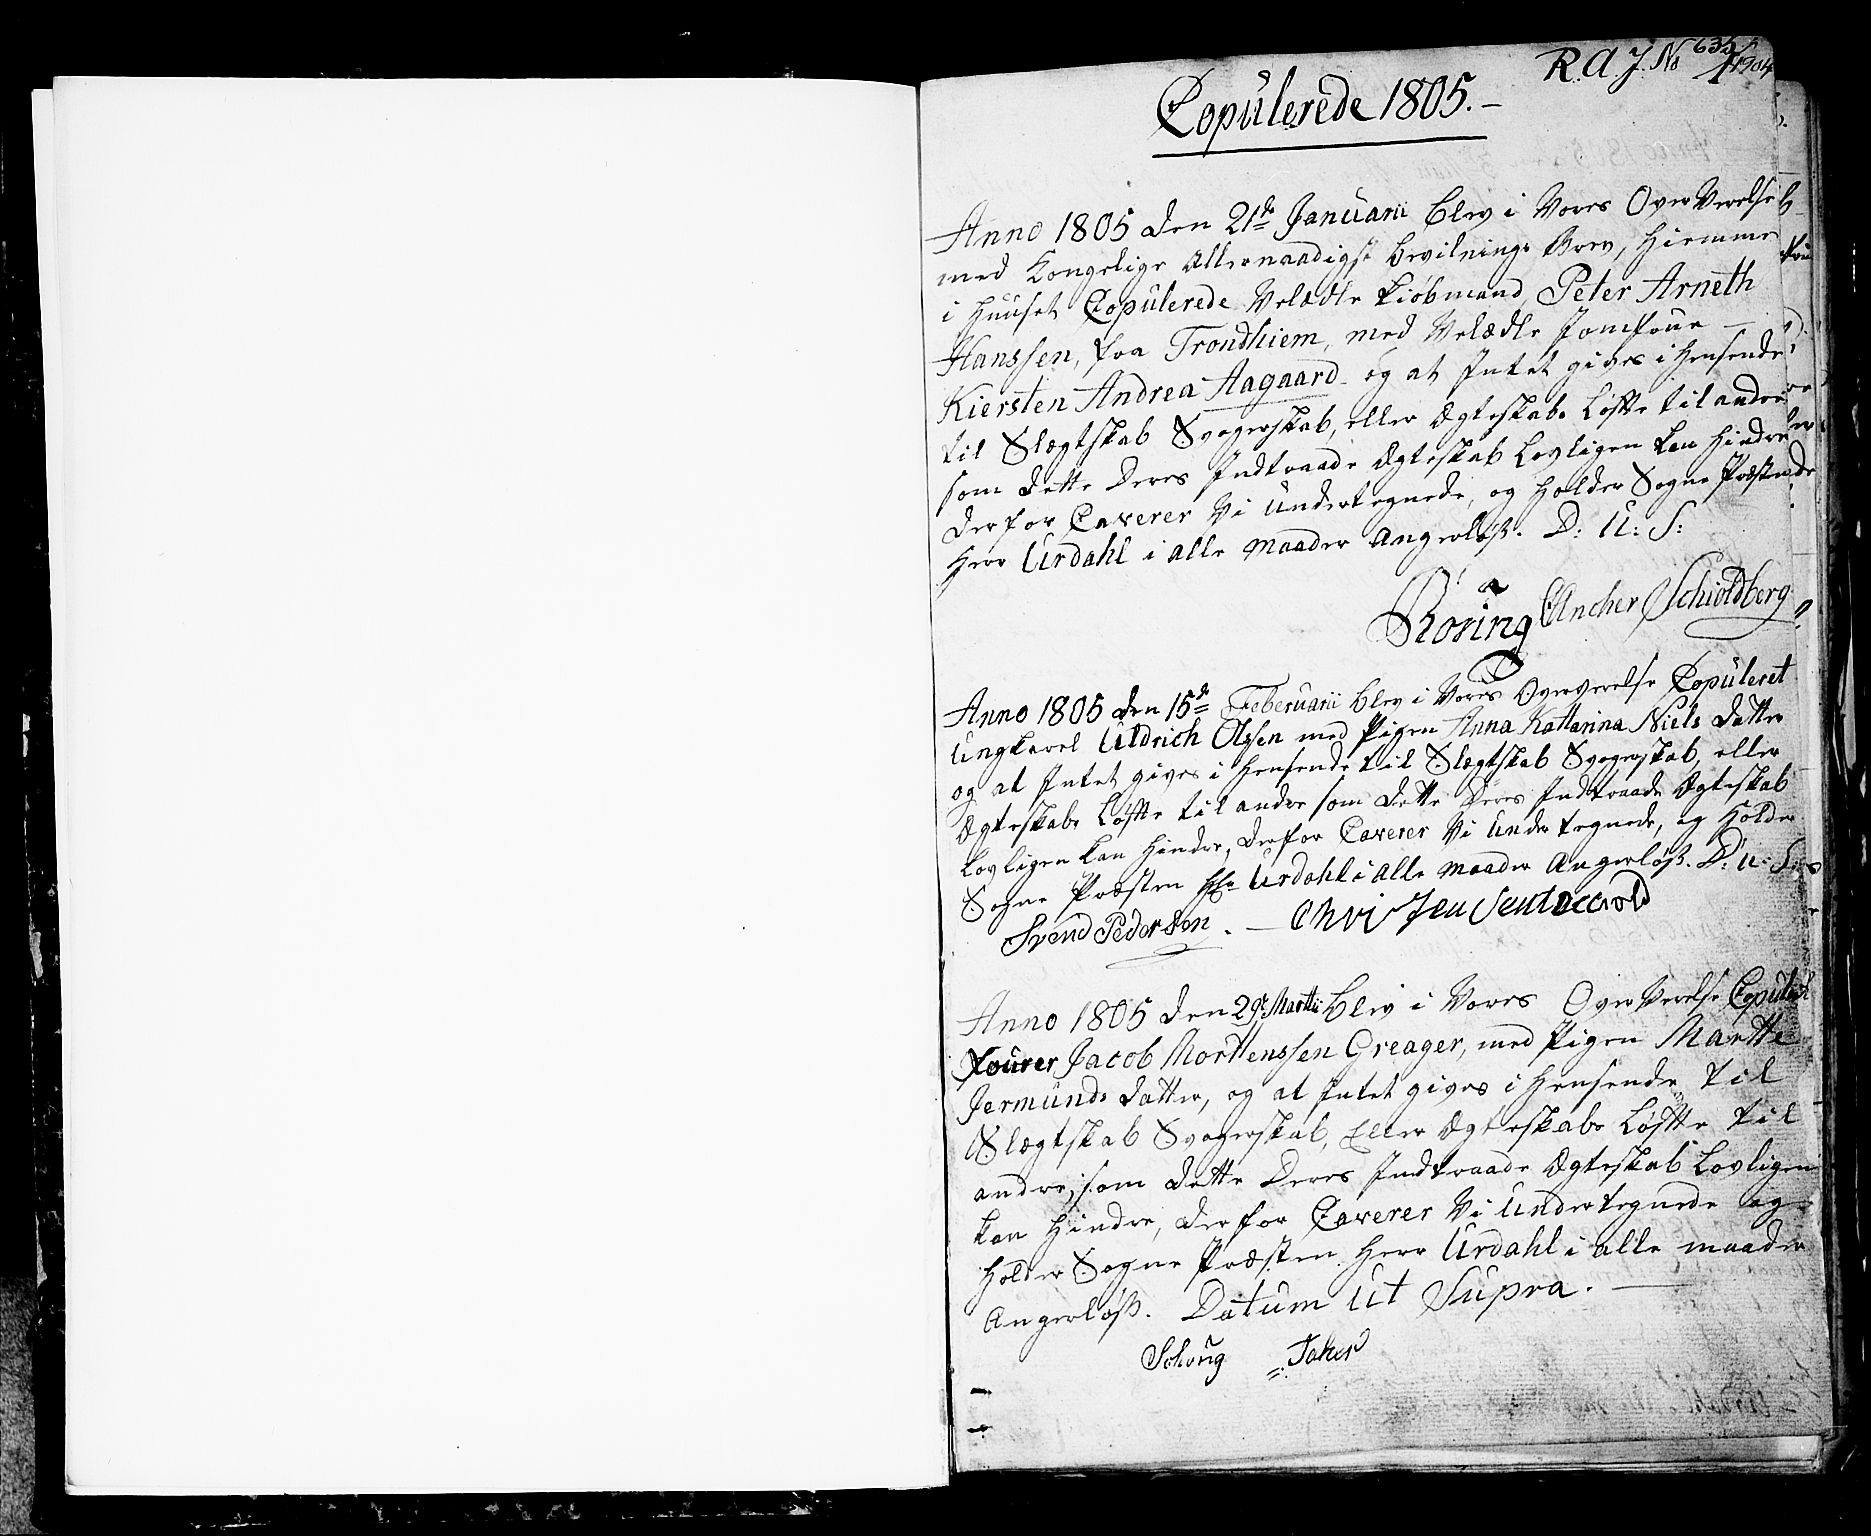 R. A J. No 635/1904
Copulerede 1805.-
Anno 1805 den 21de Januarii blev i Vores Over Verelse
med Kongelige Allernaadigst bevilnings Brev, hiemme
i Huuset Copulerede Velædle Kiöbmand, Peter Arneth
Hanssen, fra Trondhiem, med Velædle Jomfrue —
Kiersten Andrea Aagaard - og at Intet gives i Hensende
til Slægtskab Svogerskab, eller Ægteskabs Løffte til andre
som dette Deres Indtraade Ægteskab Lovligen kan Hindre
Derfor Caverer Vi Undertegnede, og Holder Sogne Præsten
Herr Urdahl i alle Maader Angerløß. D: U: S:
Röring Ancher Schioldberg
Anno 1805 den 15de Februarii blev i Vores Oververelse Copuleret
Ungkarel Uldrich Olssen med Pigen Anna Kattarina Niels datter
og at Intet gives i Hensende til Slægtskab Svogerskab, eller
Ægteskabs Løffte til andre som dette Deres Indtraade Ægteskab
Lovligen kan Hindre, Derfor Caverer Vi Undertegnede, og Holder
Sogne Præsten Hr Urdahl i alle Maader Angerløß. D: U: S:
Svend Pedersen. —
Anno 1805 den 29de Martii blev i Vores Over Verelse Copuleret
Fourer Jacob Mortenssen Greager, med Pigen Marthe
Jermunds datter, og at Intet gives i Hensende til
Slægtskab Svogerskab, Eller Ægteskabs Løffte til
andre, som dette Deres Indtraade Ægteskab Lovligen
kan Hindre, Derfor Caverer Vi Undertegnede og
Holder Sogne Præsten Herr Urdahl i alle maader
Angerløß. Datum Ut Supra. —
Schoug